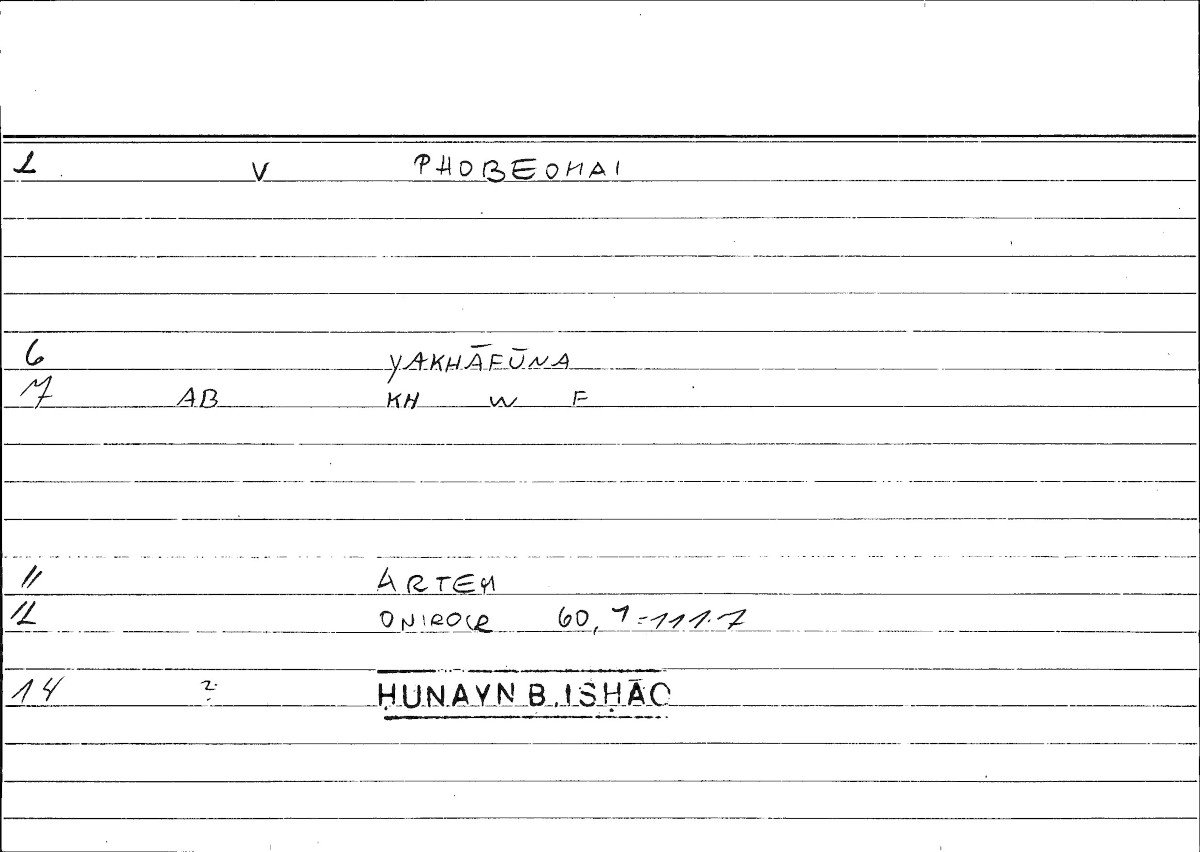 1 V PHOBEOMAI
6 YAKHĀFŪNA
7 AB KH W F
11 ARTEM
12 ONIROCR 60,7=111.7
14 2 ḤUNAYN B. ISḤĀQ